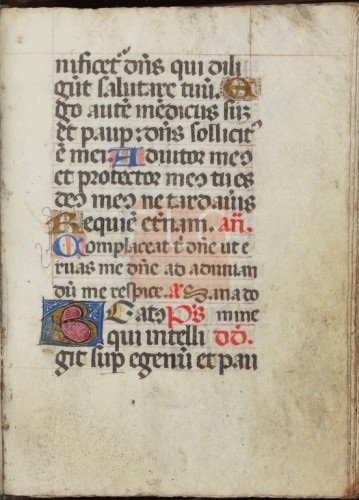 nificet᷒ dn̄s qui dili
gūt salutare tuū. E
go autē mēdicus suʒ
et paup: dn̄s sollicit᷒
ē mei. Adiutor meꝰ
et protector meꝰ tu es
deꝰ meꝰ ne tardaũis
Requiē et̄nam. añ.
Complaceat t̄ dn̄e ut e
ruas me dn̄e ad adiuuan
dū me respice. a ma do
Beatꝰ p̄s mine
qui intelli Dd̄.
git suꝑ egenū et pau